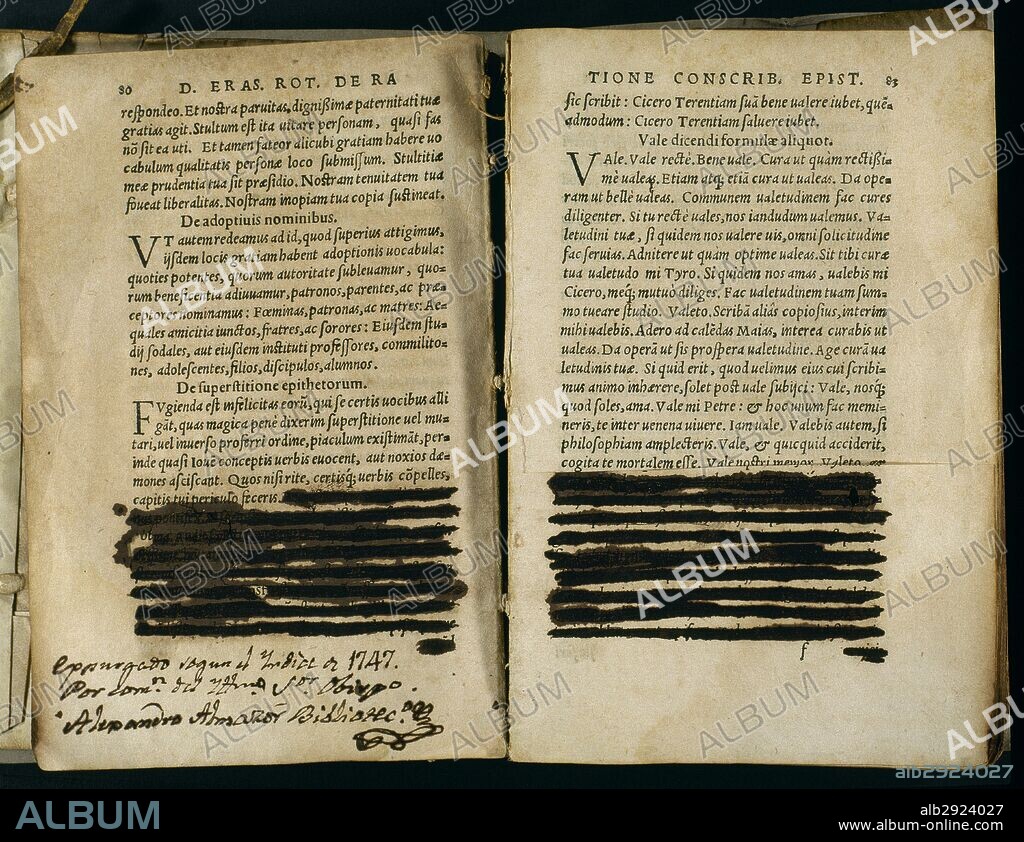 80 D. ERAS. ROT. DE RA
respondeo. Et nostra paruitas, dignißimæ paternitati tuæ
gratias agit. Stultum est ita uitare personam, quasi fas
nõ sit ea uti. Et tamen fateor alicubi gratiam habere uo
cabulum qualitatis personæ loco submissum. Stultitiæ
meæ prudentia tua sit præsidio. Nostram tenuitatem tua
foueat liberalitas. Nostram inopiam tua copia sustineat.
De adoptiuis nominibus.
VT autem redeamus ad id, quod superius attigimus,
ijsdem locis gratiam habent adoptionis uocabula:
quoties potentes, quorum autoritate subleuamur, quo=
rum beneficentia adiuuamur, patronos, parentes, ac præ=
ceptores nominamus: Fœminas, patronas, ac matres: Ae=
quales amicitia iunctos, fratres, ac sorores: Eiusdem stu=
dij sodales, aut eiusdem instituti professores, commilito=
nes, adolescentes, filios, discipulos, alumnos.
De superstitione epithetorum.
FVgienda est infelicitas eorũ, qui se certis uocibus alli
gãt, quas magica penè dixerim superstitione uel mu=
tari, uel inuerso proferri ordine, piaculum existimãt, per=
inde quasi Iouẽ conceptis uerbis euocent, aut noxios dæ=
mones asciscant. Quos nisi rite, certisq; uerbis cõpelles,
capitis tui periculo feceris.
Expurgado segun el Yndice de 1747.
Por com.ⁿ del Yllmo S.ᵒʳ Obispo.
Alexandro Almañor Bibliotec.º
TIONE CONSCRIB. EPIST. 83
sic scribit: Cicero Terentiam suã bene ualere iubet, quẽ=
admodum: Cicero Terentiam saluere iubet.
Vale dicendi formulæ aliquot.
VAle. Vale rectè. Bene uale. Cura ut quàm rectißi=
mè ualeas. Etiam atq; etiã cura ut ualeas. Da ope=
ram ut bellè ualeas. Communem ualetudinem fac cures
diligenter. Si tu rectè uales, nos iandudum ualemus. Va=
letudini tuæ, si quidem nos ualere uis, omni solicitudine
fac seruias. Adnitere ut quàm optime ualeas. Sit tibi curæ
tua ualetudo mi Tyro. Si quidem nos amas, ualebis mi
Cicero, meq; mutuo diliges. Fac ualetudinem tuam sum=
mo tueare studio. Valeto. Scribã aliâs copiosius, interim
mihi ualebis. Adero ad calẽdas Maias, interea curabis ut
ualeas. Da operã ut sis prospera ualetudine. Age curã ua
letudinis tuæ. Si quid erit, quod uelimus eius cui scribi=
mus animo inhærere, solet post uale subijci: Vale, nosq;
quod soles, ama. Vale mi Petre: & hoc unum fac memi=
neris, te inter uenena uiuere. Iam uale. Valebis autem, si
philosophiam amplecteris. Vale, & quicquid acciderit,
cogita te mortalem esse. Vale nostri memor. Valeto,
f
ALBUM
alb2924027
alb2924027
www.album-online.com